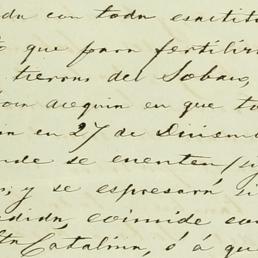 con toda exactitu
que para fertiliz
tierras del Sobaco,
acequia en que to
en 27 de Diciem
se cuenten
y se espresará
coincide con
Catalina, ó á qu